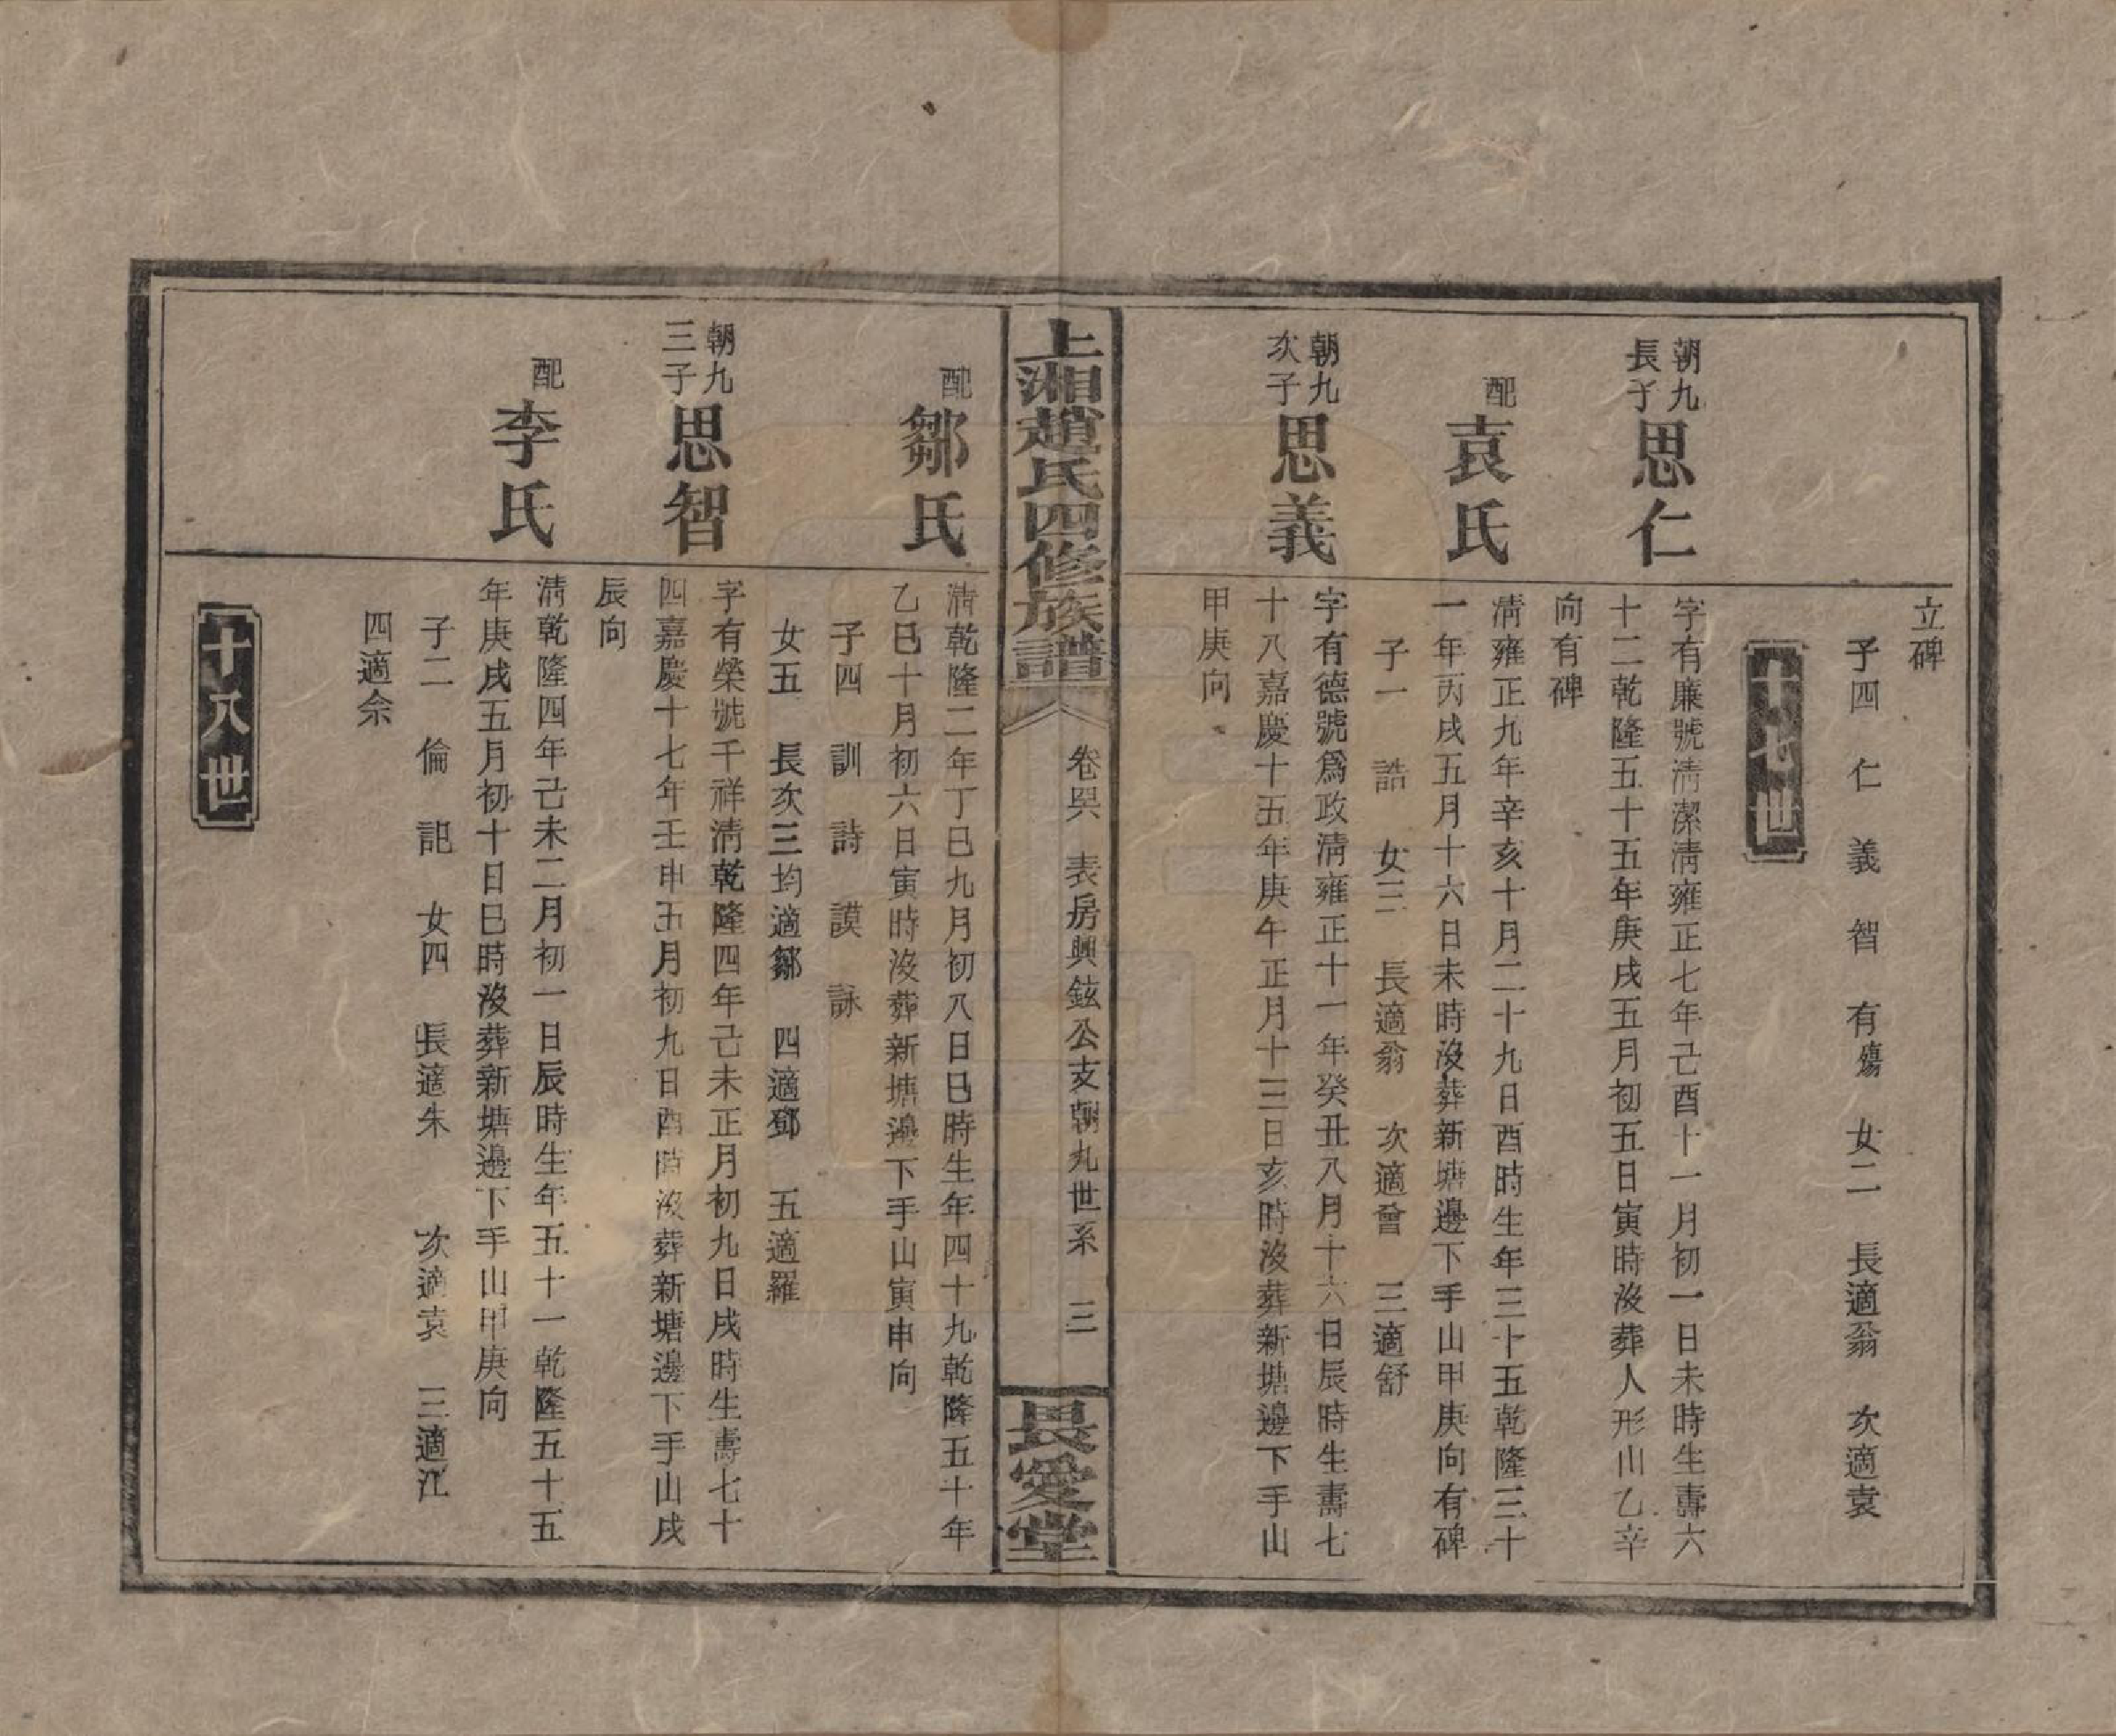 立碑
子四 仁 義 智 有殤 女二 長適翁 次適袁
十七世
朝九長子 思仁
字有廉號淸潔淸雍正七年己酉十一月初一日未時生壽六
十二乾隆五十五年庚戌五月初五日寅時沒葬人形山乙辛
向有碑
配 袁氏
淸雍正九年辛亥十月二十九日酉時生年三十五乾隆三十
一年丙戌五月十六日未時沒葬新塘邊下手山甲庚向有碑
子一 誥 女三 長適翁 次適曾 三適舒
朝九次子 思義
字有德號爲政淸雍正十一年癸丑八月十六日辰時生壽七
十八嘉慶十五年庚午正月十三日亥時沒葬新塘邊下手山
甲庚向
上湘趙氏四修族譜
卷 表房興鉉公支朝九世系 三
長愛堂
配 鄒氏
淸乾隆二年丁巳九月初八日巳時生年四十九乾隆五十年
乙巳十月初六日寅時沒葬新塘邊下手山寅申向
子四 訓 詩 謨 詠
女五 長次三均適鄒 四適鄧 五適羅
朝九三子 思智
字有榮號千祥淸乾隆四年己未正月初九日戌時生壽七十
四嘉慶十七年壬申五月初九日酉時沒葬新塘邊下手山戌
辰向
配 李氏
淸乾隆四年己未二月初一日辰時生年五十一乾隆五十五
年庚戌五月初十日巳時沒葬新塘邊下手山甲庚向
子二 倫 記 女四 長適朱 次適袁 三適江
四適佘
十八世